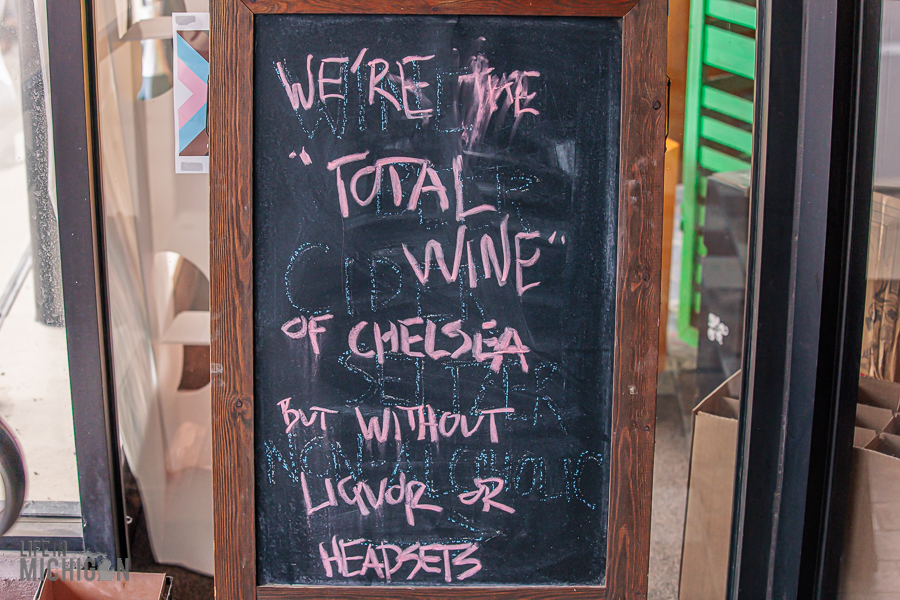 WE'RE THE
"TOTAL
WINE"
OF CHELSEA
BUT WITHOUT
LIQUOR OR
HEADSETS
WINE
BEER
CIDER
SELTZER
NON-ALCOHOLIC
LIFE IN
MICHIGAN